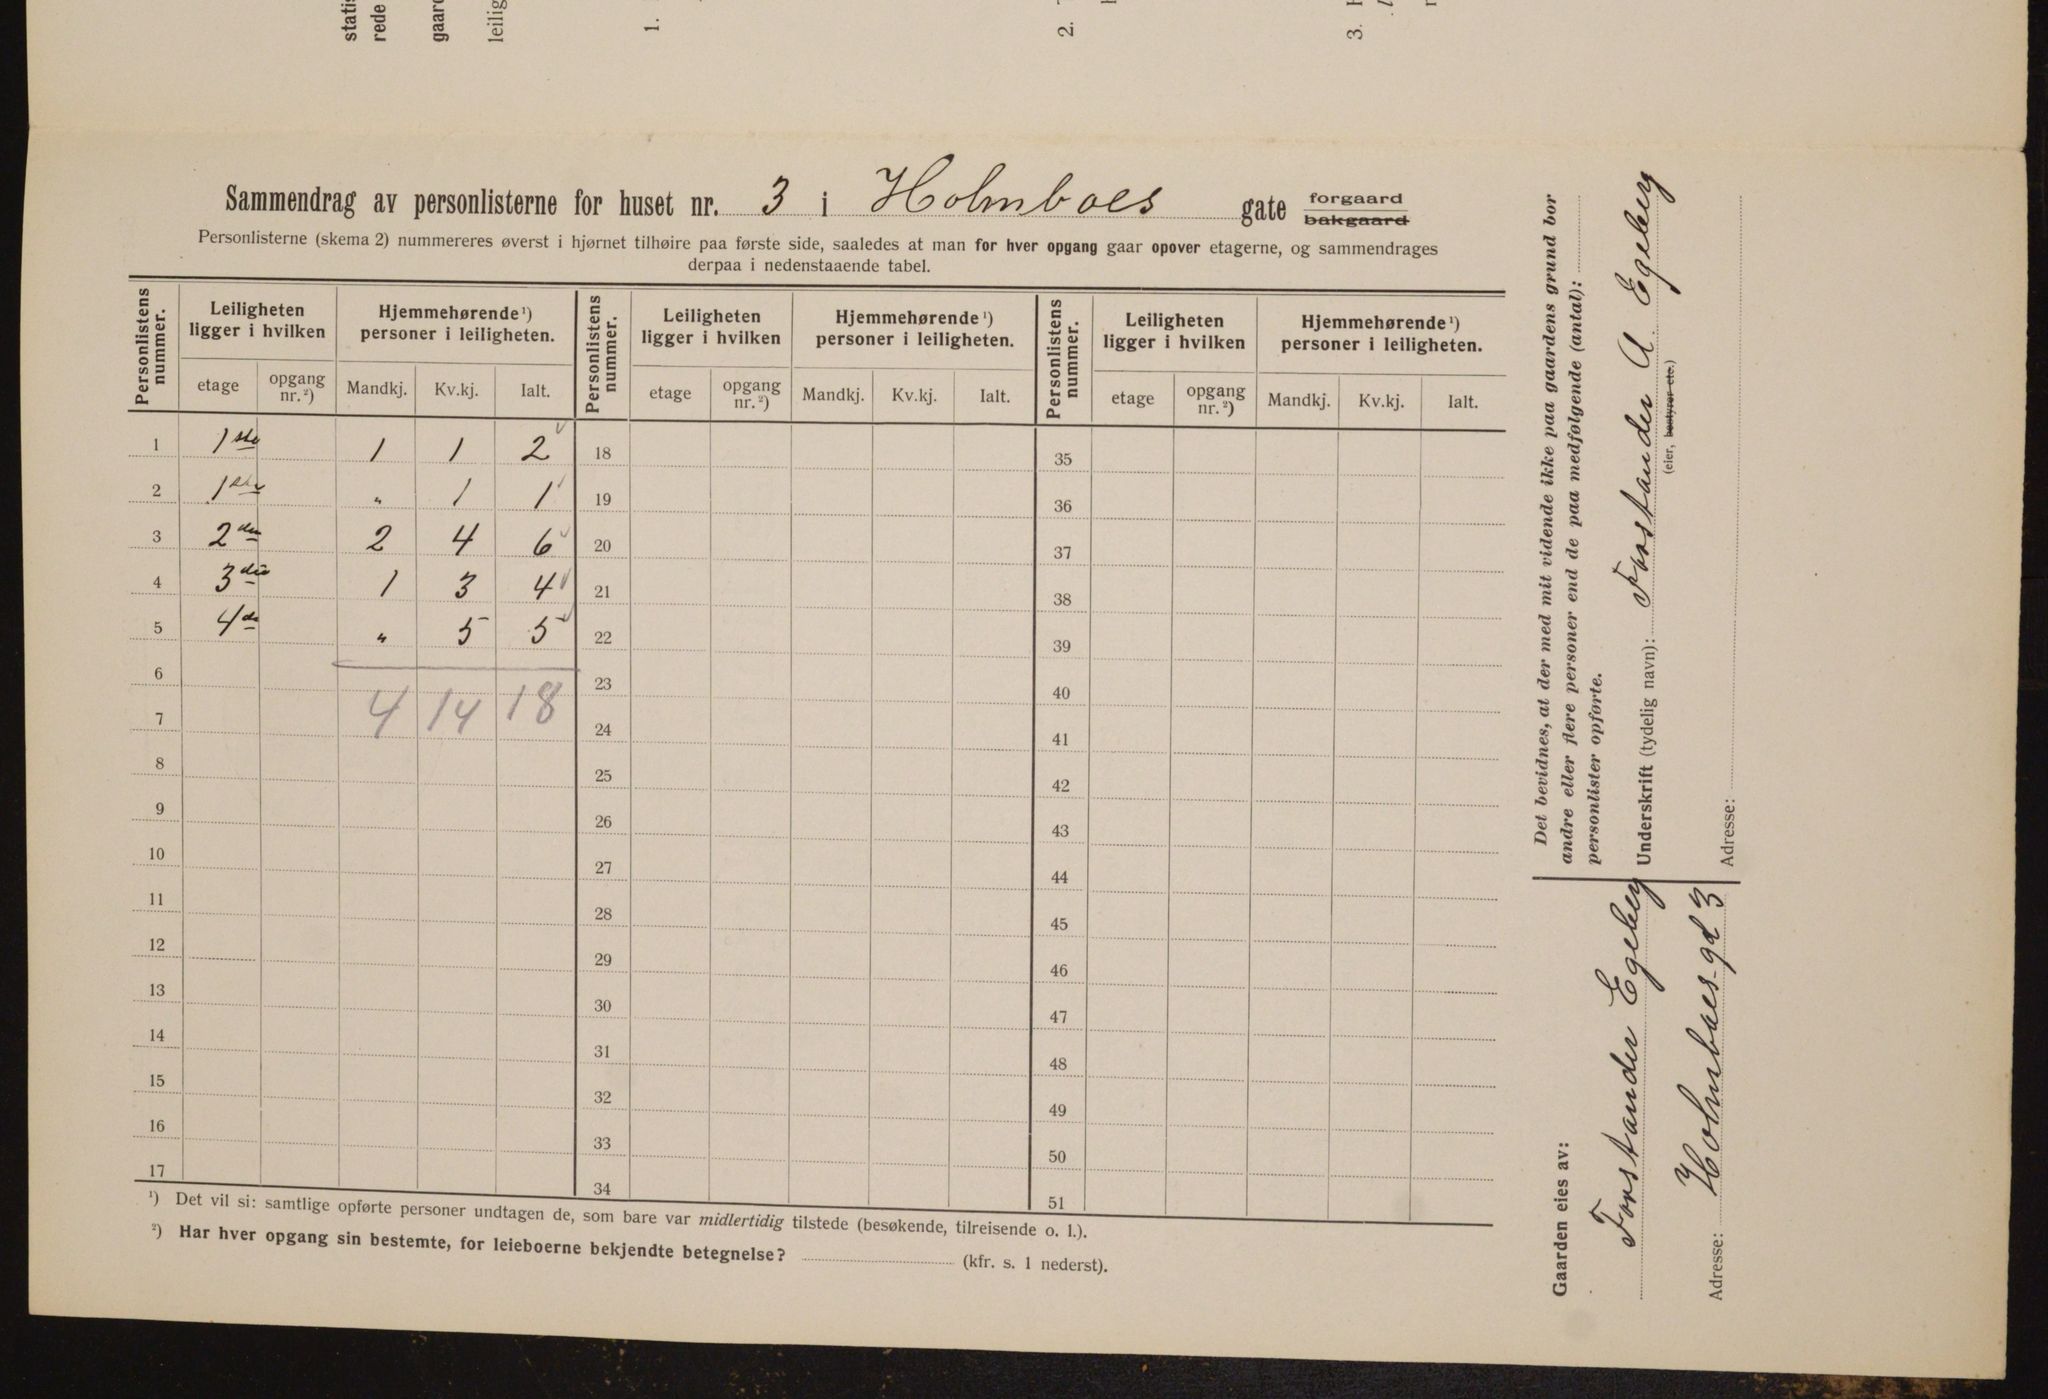 statis
rede
gaard
leilig
1.
2.
3.
Sammendrag av personlisterne for huset nr. 3 i Holmboes gate forgaard bakgaard
Personlisterne (skema 2) nummereres øverst i hjørnet tilhøire paa første side, saaledes at man for hver opgang gaar opover etagerne, og sammendrages
derpaa i nedenstaaende tabel.
Personlistens nummer. Leiligheten ligger i hvilken Hjemmehørende ¹) personer i leiligheten. Personlistens nummer. Leiligheten ligger i hvilken Hjemmehørende ¹) personer i leiligheten. Personlistens nummer. Leiligheten ligger i hvilken Hjemmehørende ¹) personer i leiligheten.
etage opgang nr. ²) Mandkj. Kv.kj. Ialt. etage opgang nr. ²) Mandkj. Kv.kj. Ialt. etage opgang nr. ²) Mandkj. Kv.kj. Ialt.
1 1ste 1 1 2 18 35
2 1ste " 1 1 19 36
3 2den 2 4 6 20 37
4 3die 1 3 4 21 38
5 4de " 5 5 22 39
6 23 40
7 4 14 18 24 41
8 25 42
9 26 43
10 27 44
11 28 45
12 29 46
13 30 47
14 31 48
15 32 49
16 33 50
17 34 51
¹) Det vil si: samtlige opførte personer undtagen de, som bare var midlertidig tilstede (besøkende, tilreisende o. l.).
²) Har hver opgang sin bestemte, for leieboerne bekjendte betegnelse? (kfr. s. 1 nederst).
Det bevidnes, at der med mit vidende ikke paa gaardens grund bor
andre eller flere personer end de paa medfølgende (antal):
personlister opførte.
Underskrift (tydelig navn): Forstander A. Egeberg
(eier, bestyrer etc.)
Adresse:
Gaarden eies av:
Forstander Egeberg
Adresse: Holmboes gd 3